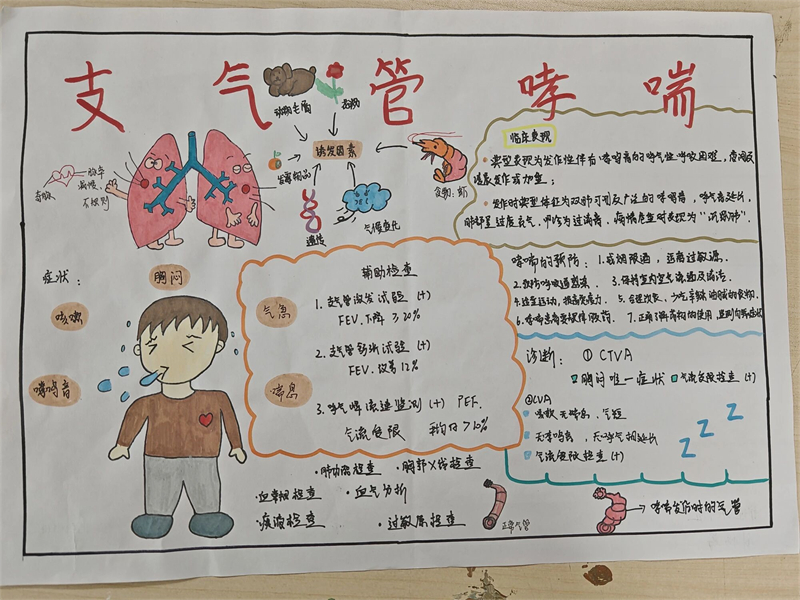 支气管哮喘
动物毛屑
花粉
诱发因素
食物:虾
气候变化
遗传
奇脉
脉率
减慢
不规则
临床表现
典型表现为发作性伴有哮鸣音的呼气性呼吸困难,
发作时典型体征为双肺可闻及广泛的哮鸣音,呼气音延长,
哮喘的预防:1.戒烟限酒,远离过敏源.
2.预防呼吸道感染. 3.保持室内空气流通及清洁.
4.适量运动,提高免疫力. 5.合理饮食,少吃辛辣油腻的食物.
6.哮喘患者要规律服药. 7.正确了解药物的使用
症状:
胸闷
咳嗽
哮鸣音
气急
喘息
辅助检查
1.支气管激发试验 (+)
FEV₁下降 ≥20%
2.支气管舒张试验 (+)
FEV₁改善12%
3.呼气峰流速监测 (+) PEF.
气流受限 >10%
诊断: ① CTVA
胸闷唯一症状 气流受限检查 (+)
②CVA
咳嗽,无喘息、气短
无哮鸣音,无呼气相延长
气流受限检查 (+)
z z z
·肺功能检查 ·胸部X线检查
·血常规检查 ·血气分析
·痰液检查 ·过敏原检查
正常气管
哮喘发作时的气管